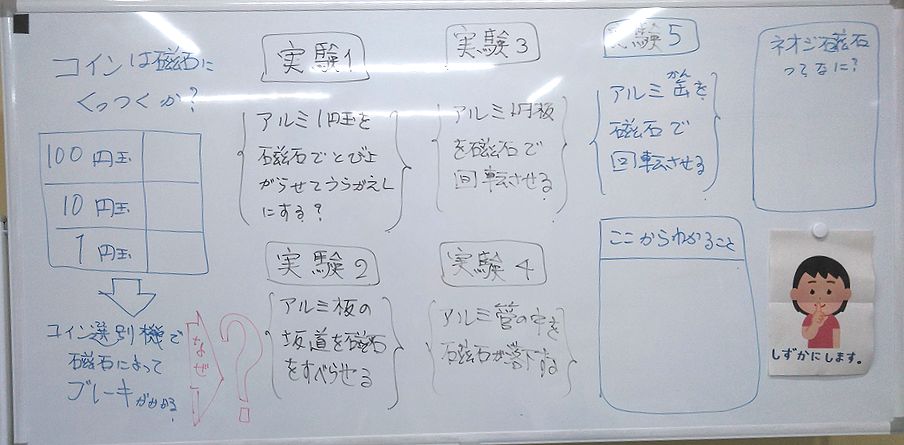 コインは磁石に
くっつくか?
100円玉
10円玉
1円玉
コイン選別機で
磁石によって
ブレーキがかかる
なぜ
?
実験1
アルミ1円玉を
磁石でとび上
がらせてうらがえし
にする?
実験2
アルミ板の
坂道を磁石
をすべらせる
実験3
アルミ円板
を磁石で
回転させる
実験4
アルミ管の中を
磁石が落下する
実験5
アルミ缶を
かん
磁石で
回転させる
ここからわかること
ネオジ磁石
ってなに?
しずかにします。